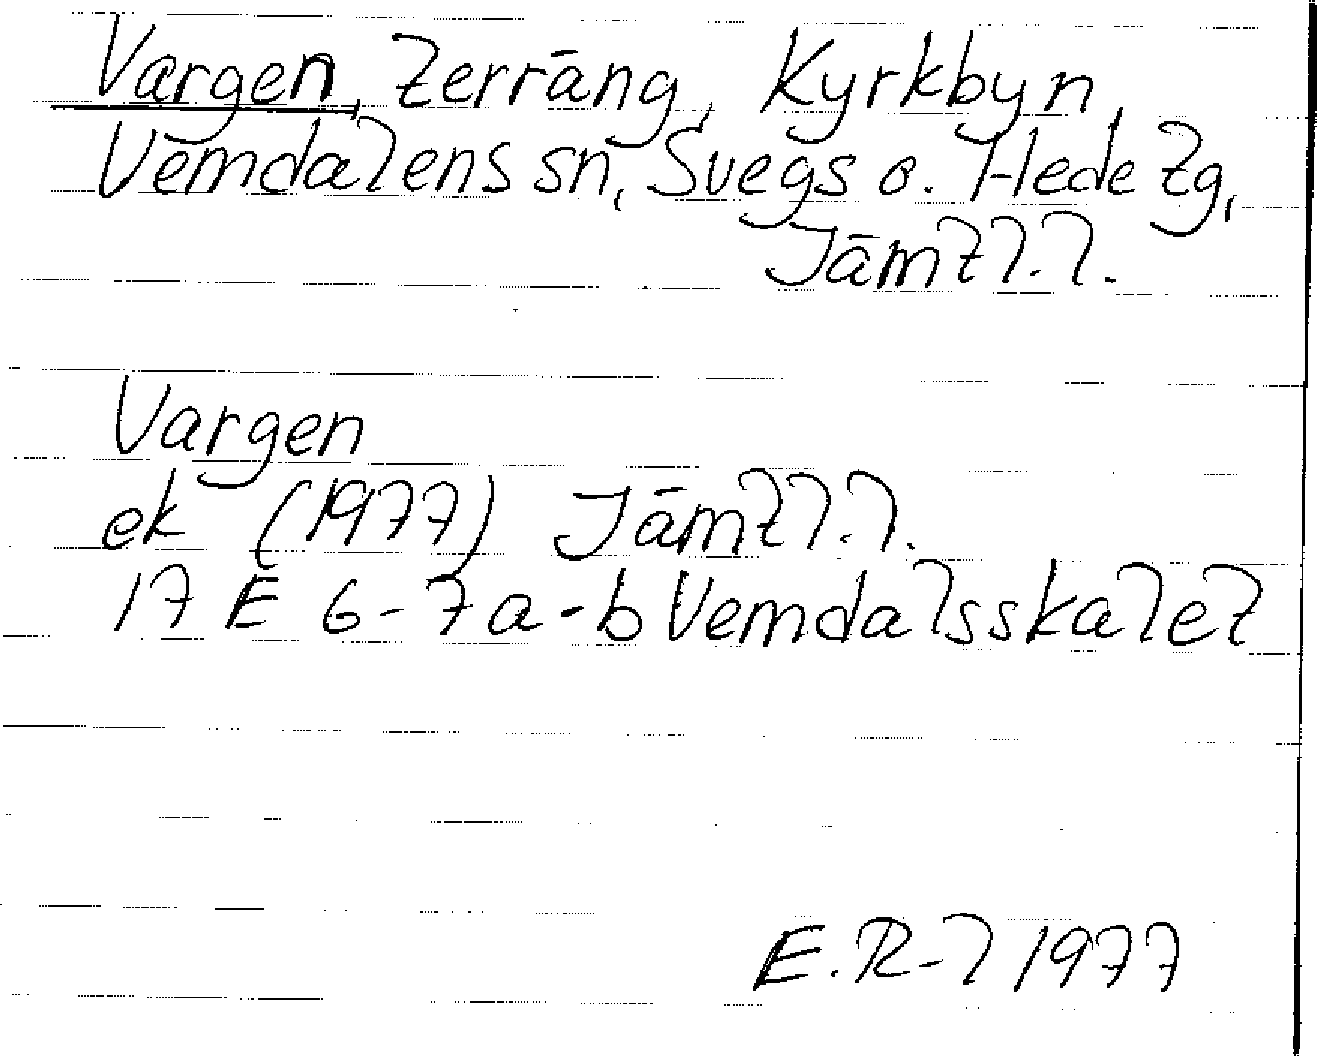 Vargen, terräng, Kyrkbyn,
Vemdalens sn, Svegs o. Hede tg,
Jämtl.l.
Vargen
ek (1977) Jämtl.l.
17 E 6-7a-b Vemdalsskalet
E.R-l 1977